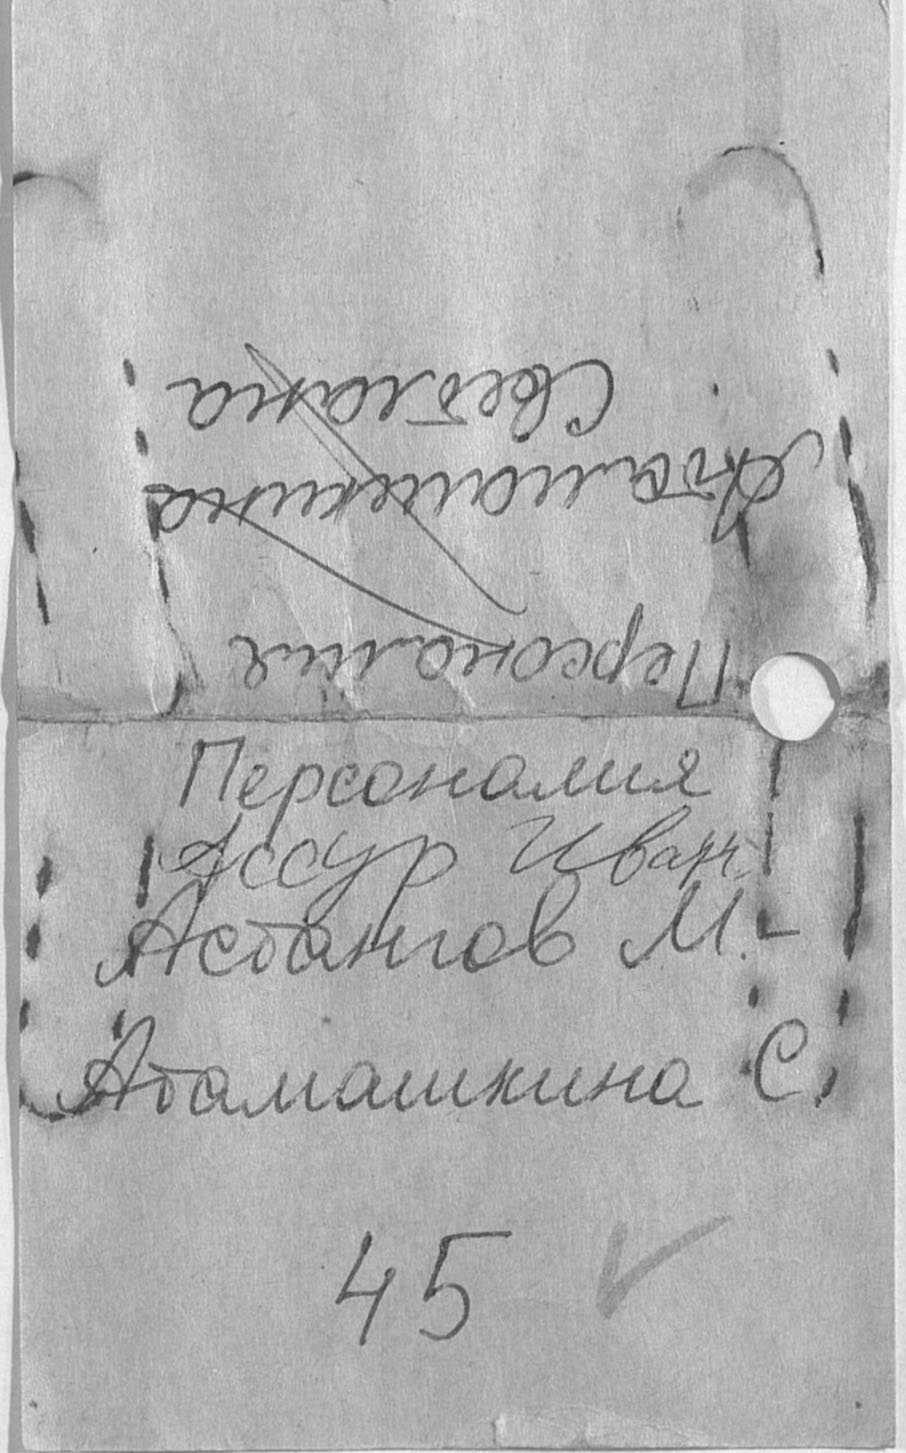 Персоналия
Атамашкина
Светлана
Персоналия
Ассур Иван
Астангов М.
Атамашкина С.
45